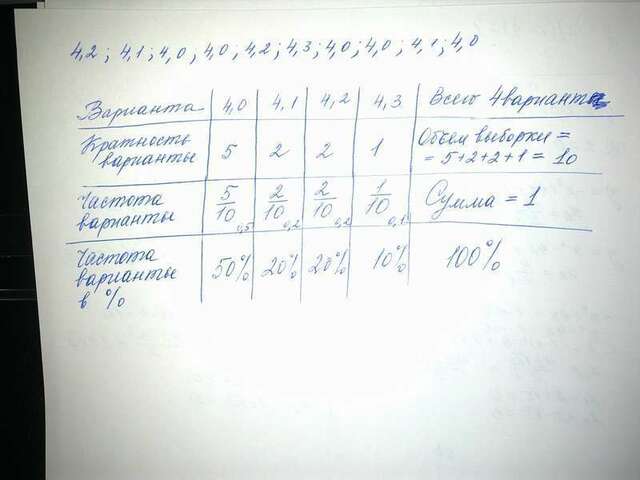 4,2 ; 4,1 ; 4,0 ; 4,0 , 4,2 ; 4,3 ; 4,0 ; 4,0 ; 4,1 ; 4,0
Варианта 4,0 4,1 4,2 4,3 Всего 4 варианты
Кратность варианты 5 2 2 1 Объем выборки = = 5+2+2+1 = 10
Частота варианты 5/10 0,5 2/10 0,2 2/10 0,2 1/10 0,1 Сумма = 1
Частота варианты в % 50% 20% 20% 10% 100%